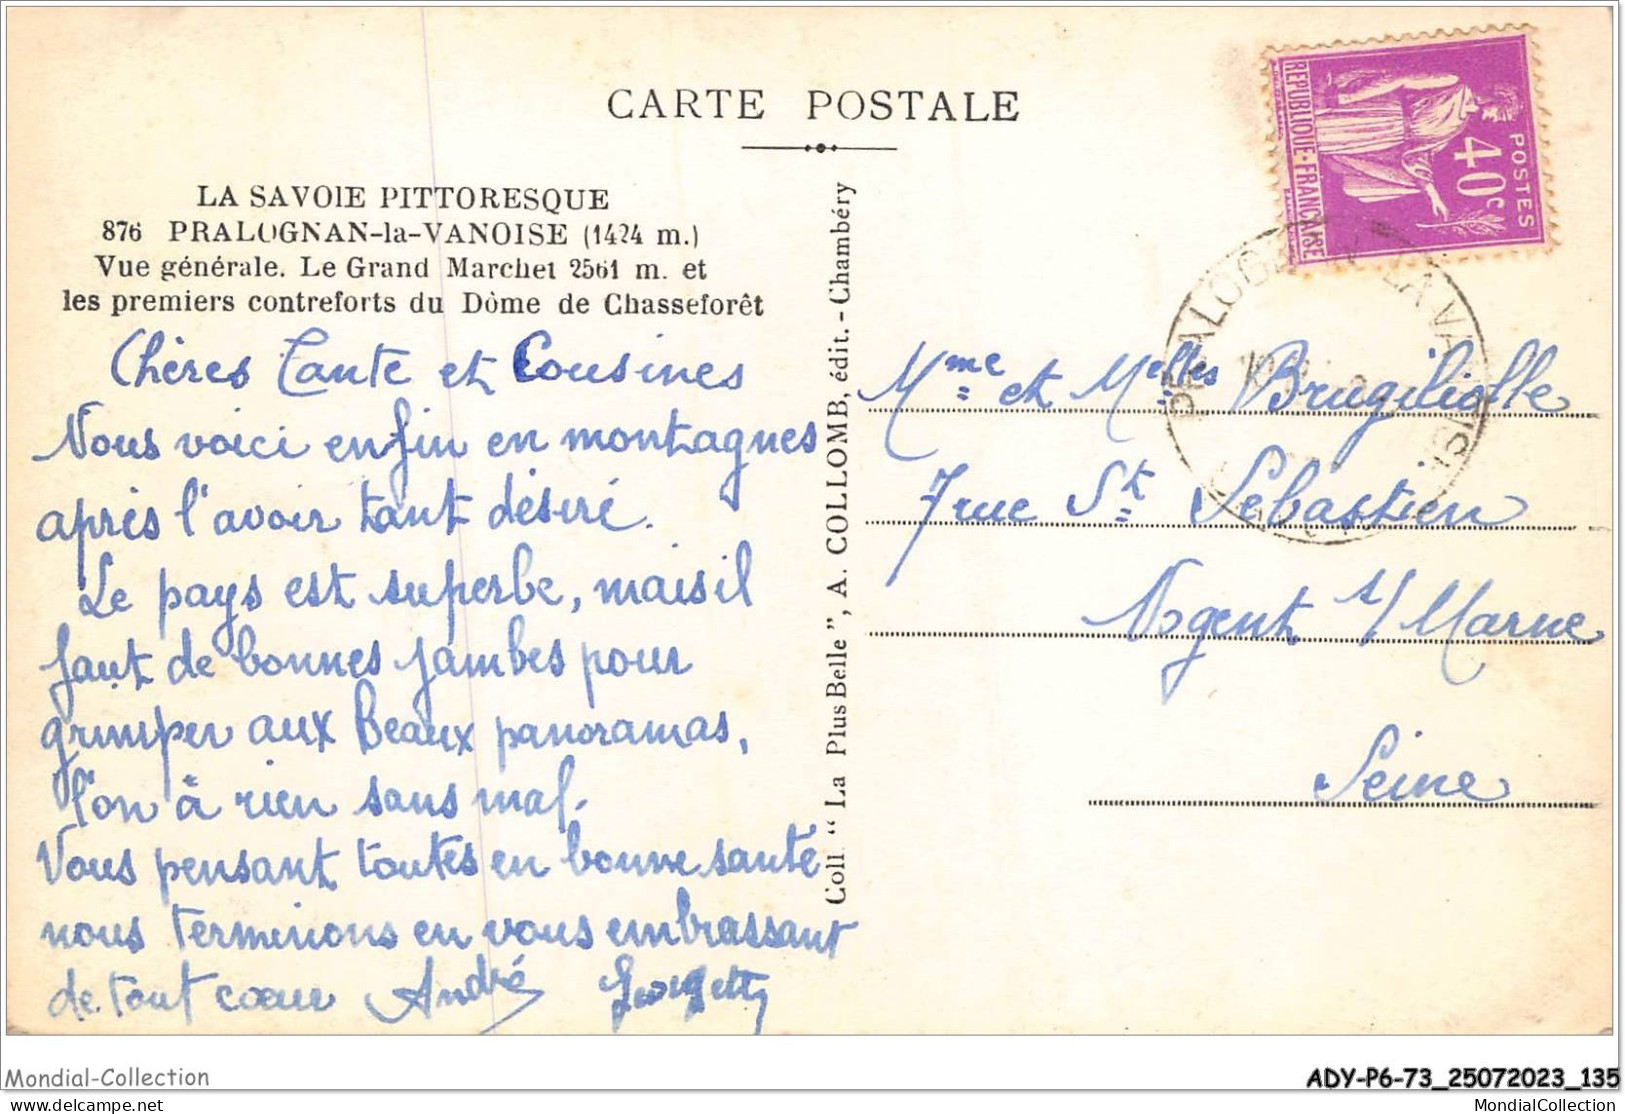 CARTE POSTALE
LA SAVOIE PITTORESQUE
876 PRALOGNAN-la-VANOISE (1424 m.)
Vue générale. Le Grand Marchet 2561 m. et
les premiers contreforts du Dôme de Chasseforêt
Chères Tante et Cousines
Nous voici enfin en montagnes
après l'avoir tant désiré.
Le pays est superbe, mais il
faut de bonnes jambes pour
grimper aux beaux panoramas,
l'on à rien sans mal.
Vous pensant toutes en bonne santé
nous terminons en vous embrassant
de tout cœur André Georgette
Coll. "La Plus Belle", A. COLLOMB, édit. - Chambéry
REPUBLIQUE · FRANÇAISE
POSTES
40c
PRALOGNAN LA VANOISE
Mme et Melles Brugiliolle
7 rue St Sébastien
Nogent s/ Marne
Seine
Mondial-Collection
ADY-P6-73_25072023_135
delcampe.net
MondialCollection